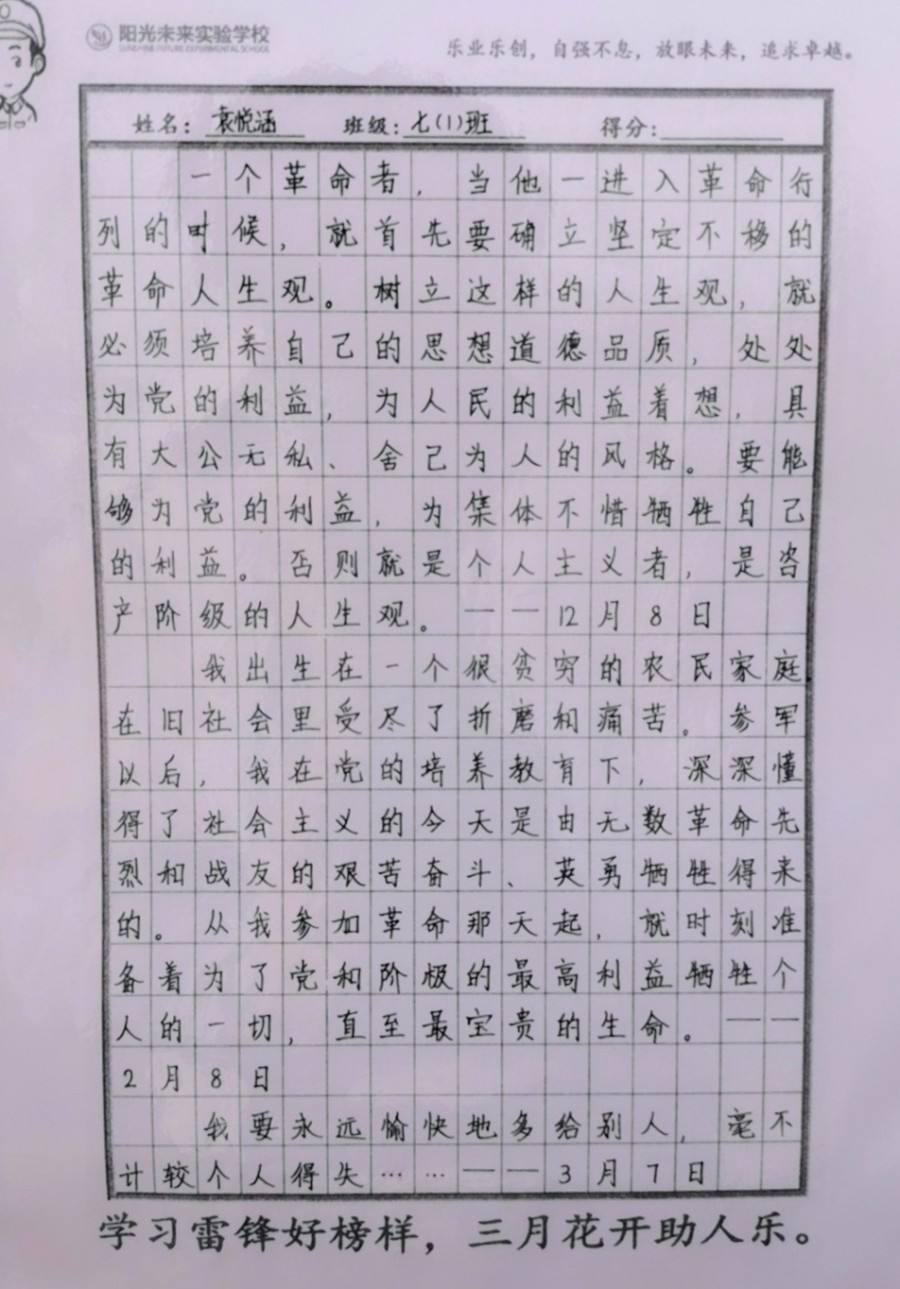 阳光未来实验学校
SUNSHINE FUTURE EXPERIMENTAL SCHOOL
乐业乐创，自强不息，放眼未来，追求卓越。
姓名：袁悦涵 班级：七（1）班 得分：
一个革命者，当他一进入革命行
列的时候，就首先要确立坚定不移的
革命人生观。树立这样的人生观，就
必须培养自己的思想道德品质，处处
为党的利益，为人民的利益着想，具
有大公无私、舍己为人的风格。要能
够为党的利益，为集体不惜牺牲自己
的利益。否则就是个人主义者，是咨
产阶级的人生观。——12月8日
我出生在一个很贫穷的农民家庭
在旧社会里受尽了折磨和痛苦。参军
以后，我在党的培养教育下，深深懂
得了社会主义的今天是由无数革命先
烈和战友的艰苦奋斗、英勇牺牲得来
的。从我参加革命那天起，就时刻准
备着为了党和阶极的最高利益牺牲个
人的一切，直至最宝贵的生命。——
2月8日
我要永远愉快地多给别人，毫不
计较个人得失……——3月7日
学习雷锋好榜样，三月花开助人乐。